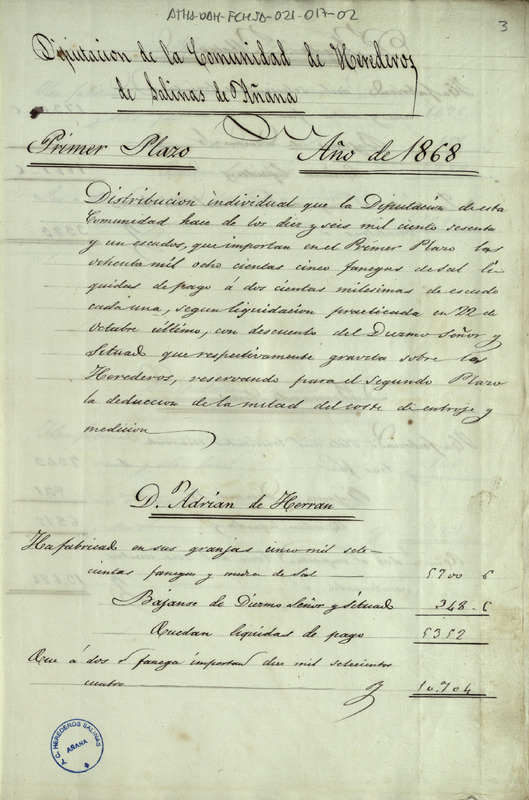 ATHA-DAH-FCHSA-021-017-02
3
Diputacion de la Comunidad de Herederos
de Salinas de Añana
Primer Plazo Año de 1868
Distribucion individual que la Diputacion de esta
Comunidad hace de los diez y seis mil ciento sesenta
y un escudos, que importan en el Primer Plazo las
ochenta mil ocho cientas cinco fanegas de sal li-
quidas de pago á dos cientas milesimas de escudo
cada una, segun liquidacion practicada en 22 de
Octubre último, con descuento del Diezmo Señor y
Situad que respectivamente gravita sobre los
Herederos, reservando para el segundo Plazo
la deduccion de la mitad del coste de entroje y
medicion
D. Adrian de Herran
Ha fabricad en sus granjas cinco mil sete-
cientas fanegas y media de sal 5700 6
Bájanse de Diezmo Señor y Situad 348-6
Quedan liquidas de pago 5352
Que á dos fanega importan diez mil setecientos
cuatro 10.704
C. G. HEREDEROS SALINAS
AÑANA